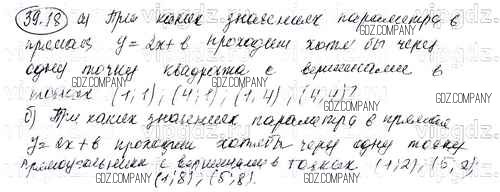 39.18 а) При каких значениях параметра в
прямая y=2x+в проходит хотя бы через
одну точку квадрата с вершинами в
точках (1;1), (4;1), (1,4), (4;4)?
б) При каких значениях параметра в прямая
y=2x+в проходит хотя бы через одну точку
прямоугольника с вершинами в точках (1;2), (5,2),
(1;8), (5;8).